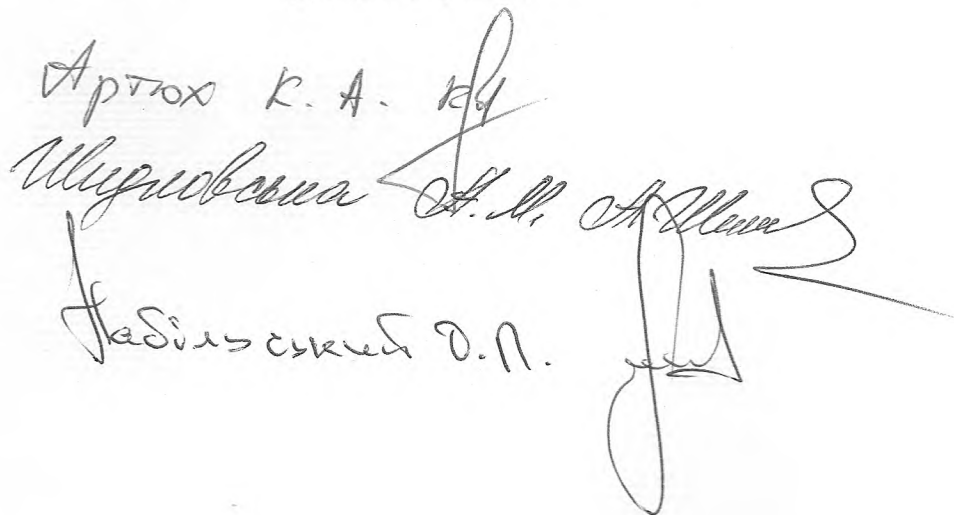 Артюх К. А.
Шидловська А. М.
Набільський О. П.